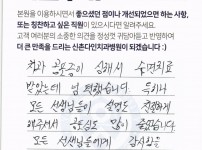 본원을 이용하시면서 좋으셨던 점이나 개선되었으면 하는 사항,
또는 칭찬하고 싶은 직원이 있으시다면 말씀해주세요.
고객 여러분의 소중한 의견을 정성껏 귀담아듣고 반영하여
더 큰 만족을 드리는 신촌다인치과병원이 되겠습니다 :)
치과 공포증이 심해서 수면치료
받았는데 넘 편했습니다. 특히나
모든 선생님들이 설명도 친절하게
해주셔서 공포심도 많이 줄었습니다
모든 선생님들에게 감사함을